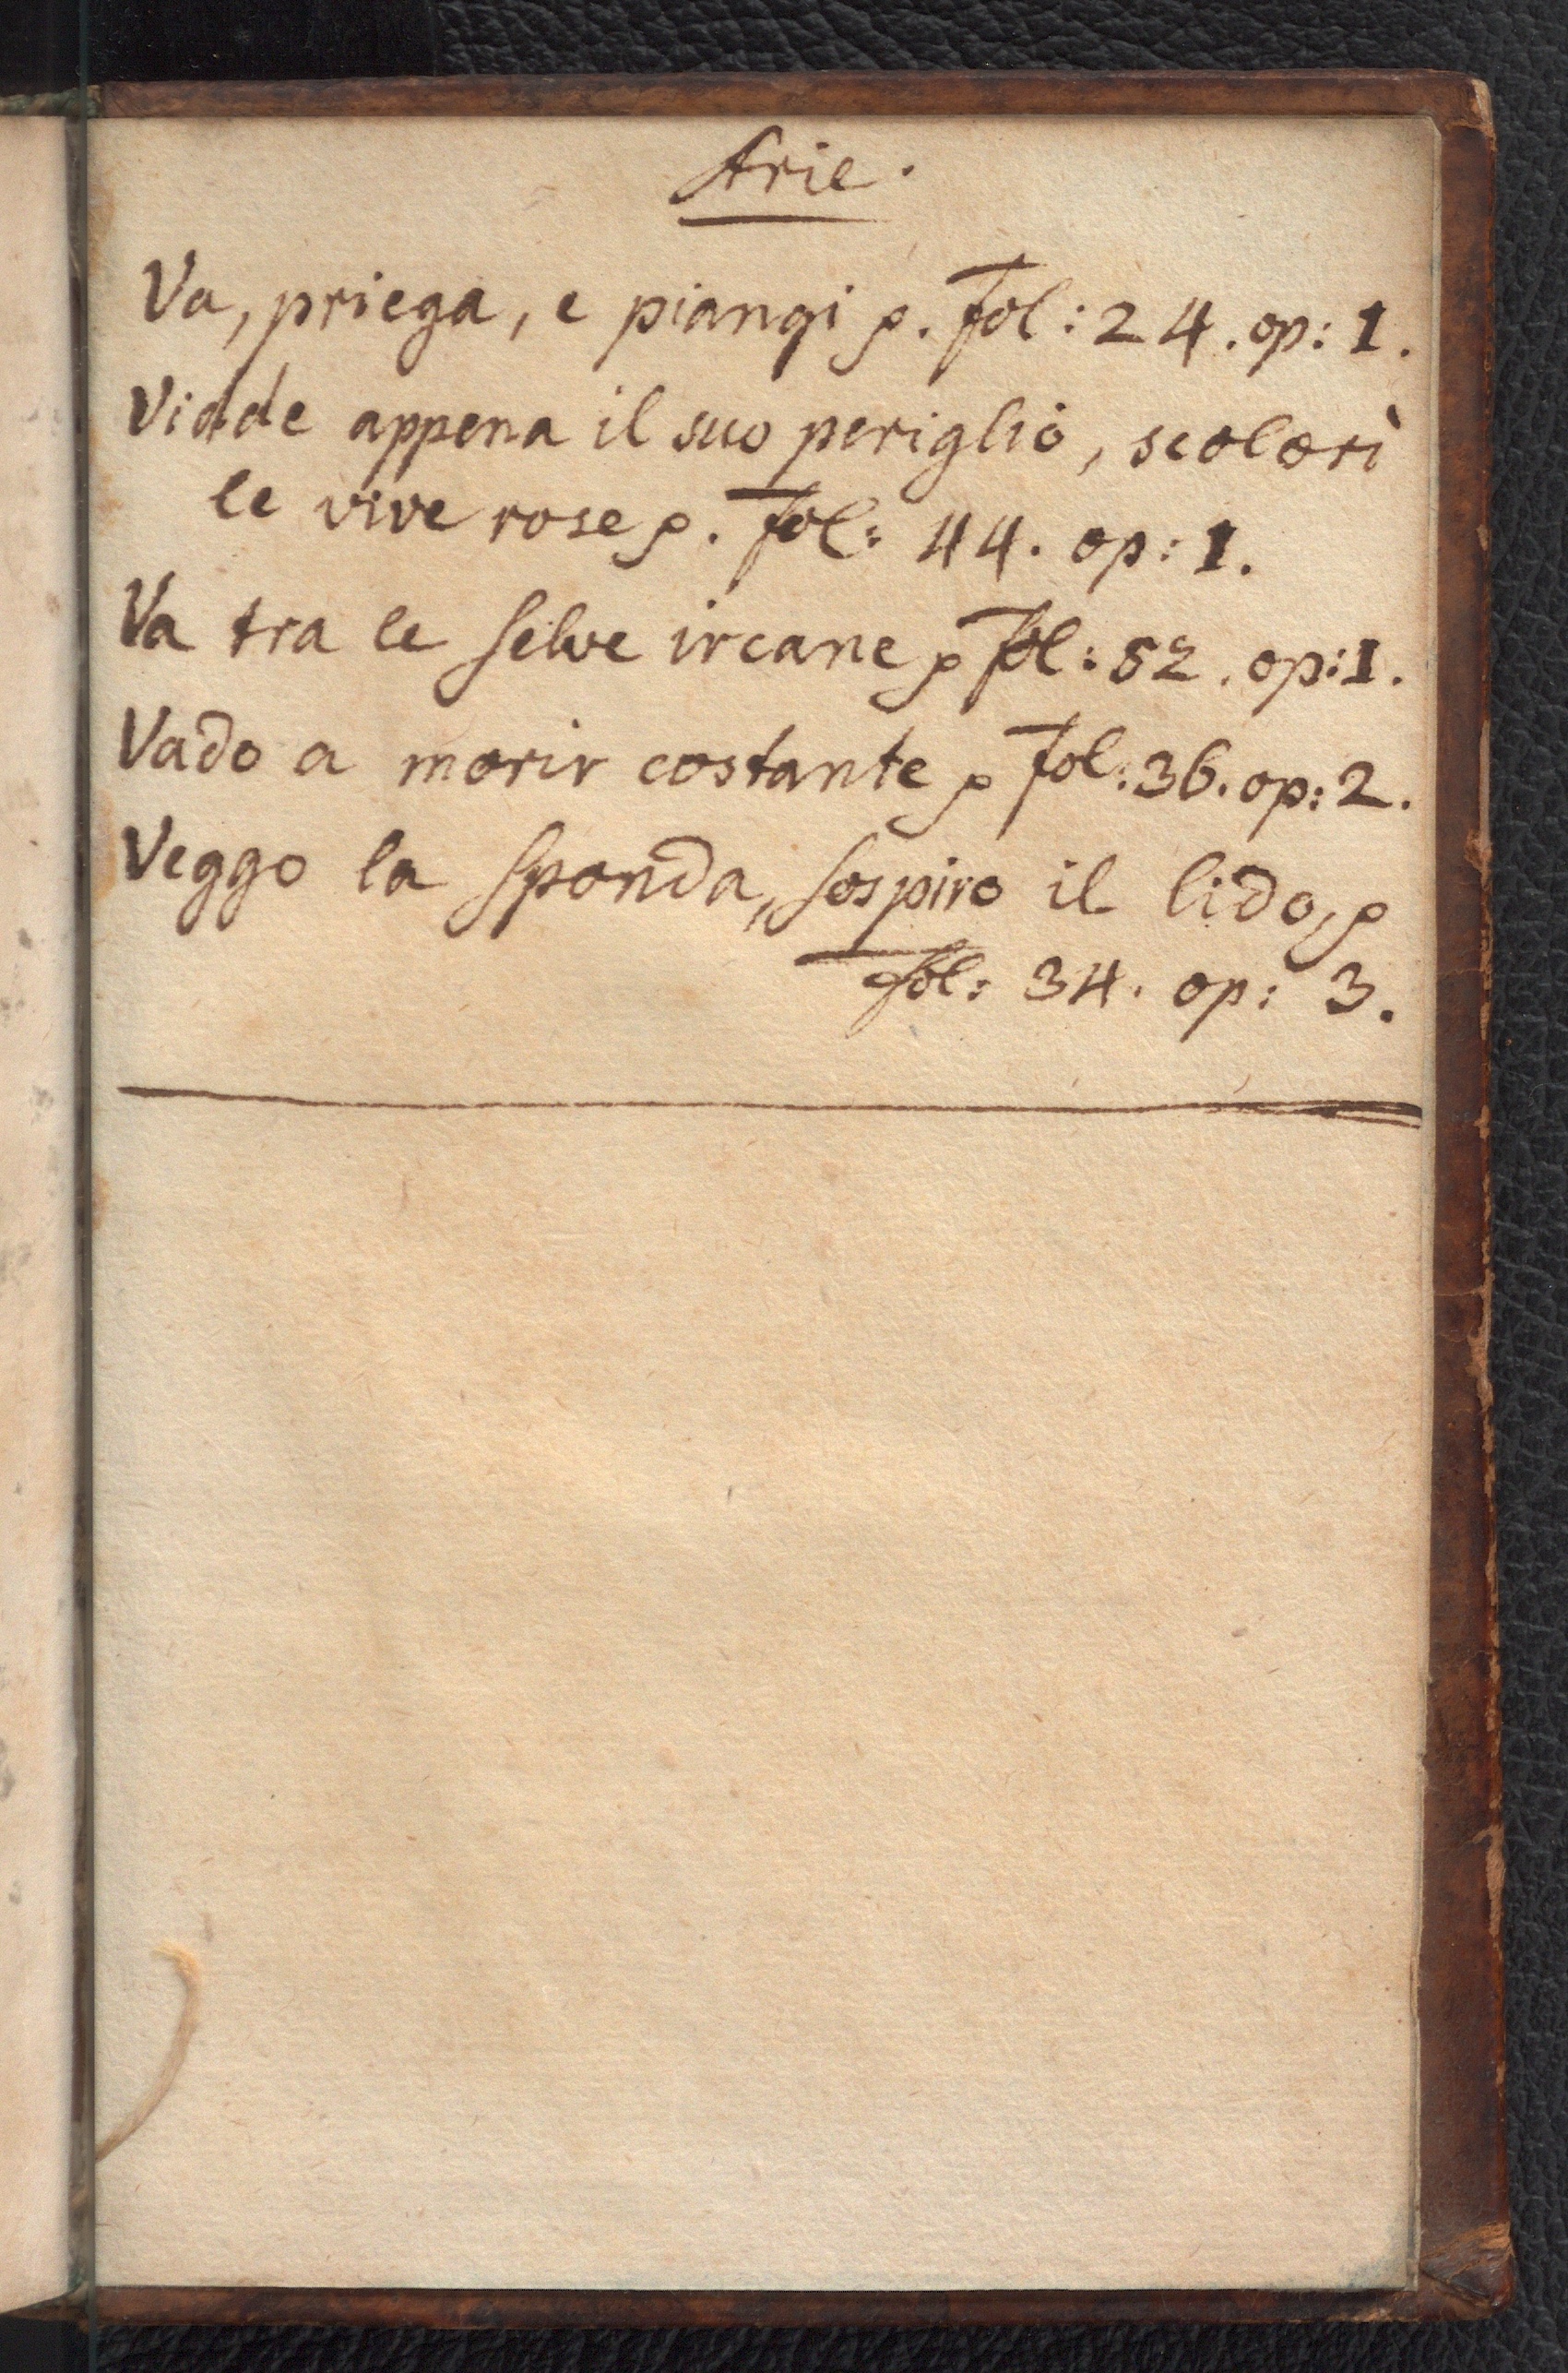 Arie.
Va, priega, e piangi p. fol: 24. op: 1.
Vidde appena il suo periglio, scolorì
le vive rose p. fol: 44. op: 1.
Va tra le selve ircane p fol: 52. op: 1.
Vado a morir costante p fol: 36. op: 2.
Veggo la sponda, sospiro il lido, p
fol: 34. op: 3.